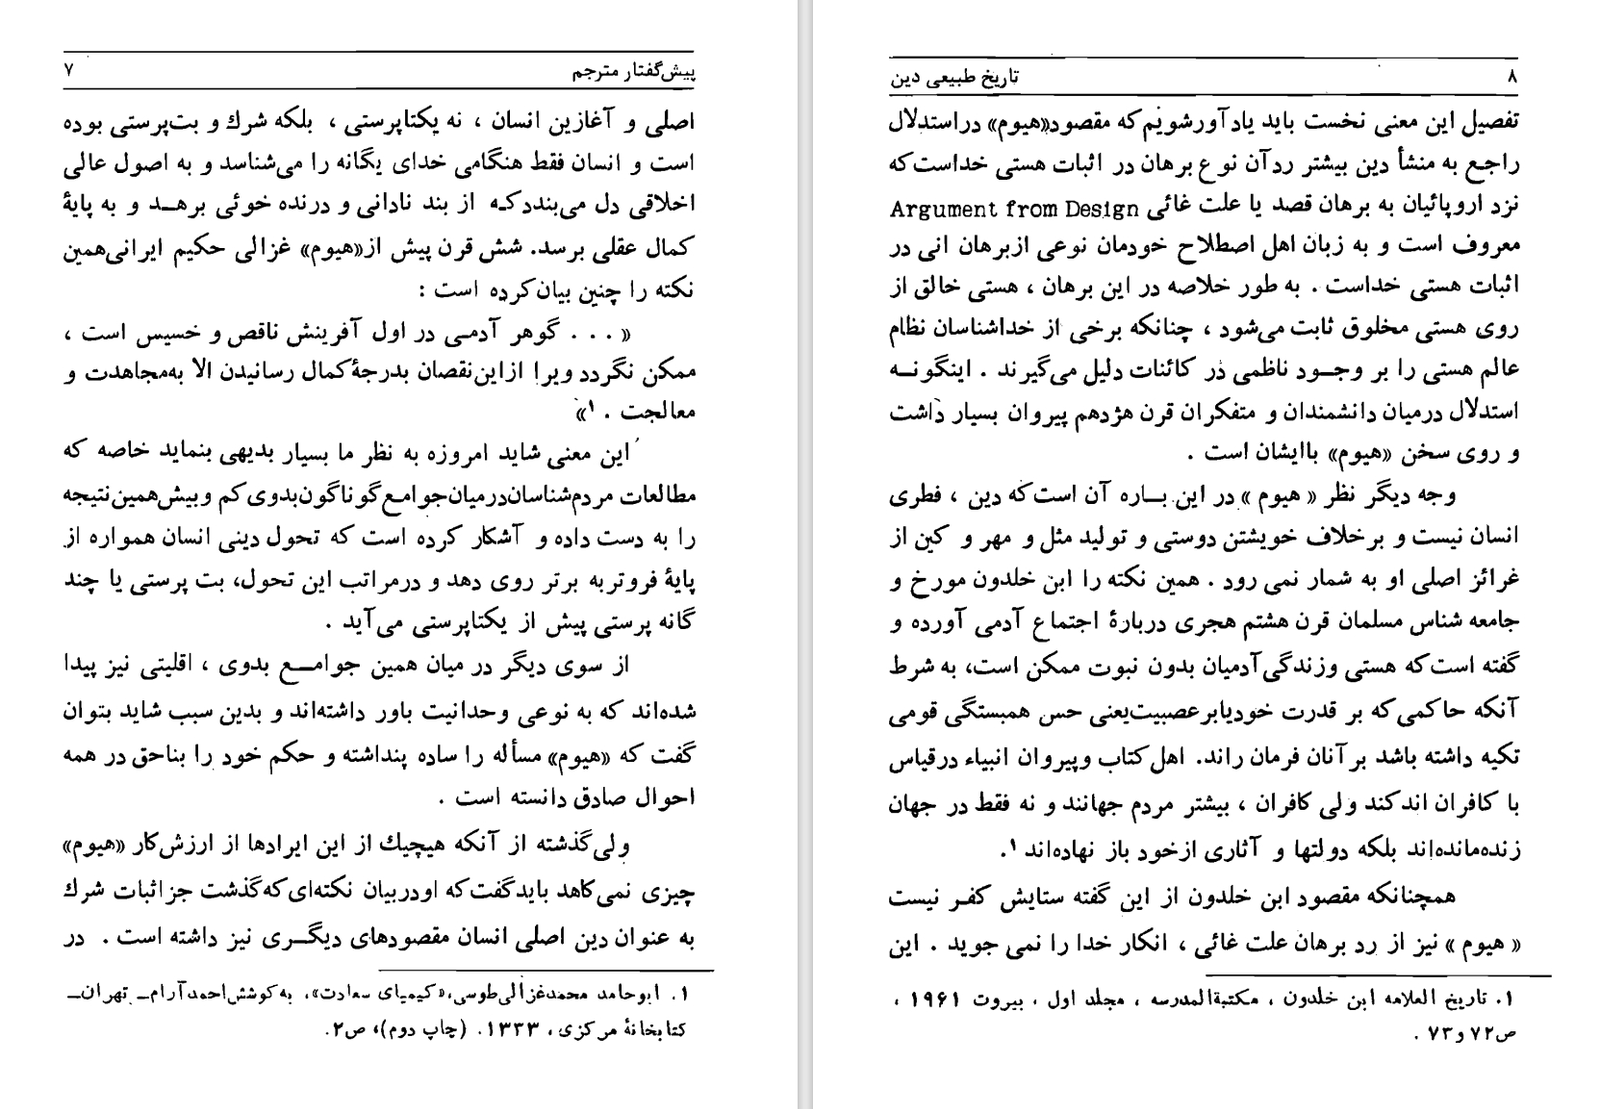 پیش‌گفتار مترجم ۷
اصلی و آغازین انسان ، نه یکتاپرستی ، بلکه شرك و بت‌پرستی بوده
است و انسان فقط هنگامی خدای یگانه را می‌شناسد و به اصول عالی
اخلاقی دل می‌بنددکه از بند نادانی و درنده خوئی برهد و به پایهٔ
کمال عقلی برسد. شش قرن پیش از«هیوم» غزالی حکیم ایرانی‌همین
نکته را چنین بیان‌کرده است :
« . . . گوهر آدمی در اول آفرینش ناقص و خسیس است ،
ممکن نگردد ویرا ازاین‌نقصان بدرجهٔ‌کمال رسانیدن الا به‌مجاهدت و
معالجت . ۱»
این معنی شاید امروزه به نظر ما بسیار بدیهی بنماید خاصه که
مطالعات مردم‌شناسان‌درمیان‌جوامع‌گوناگون‌بدوی‌کم وبیش‌همین‌نتیجه
را به دست داده و آشکار کرده است که تحول دینی انسان همواره از
پایهٔ فروتربه برتر روی دهد و درمراتب این تحول، بت پرستی یا چند
گانه پرستی پیش از یکتاپرستی می‌آید .
از سوی دیگر در میان همین جوامع بدوی ، اقلیتی نیز پیدا
شده‌اند که به نوعی وحدانیت باور داشته‌اند و بدین سبب شاید بتوان
گفت که «هیوم» مسأله را ساده پنداشته و حکم خود را بناحق در همه
احوال صادق دانسته است .
ولی‌گذشته از آنکه هیچیك از این ایرادها از ارزش‌کار «هیوم»
چیزی نمی‌کاهد بایدگفت‌که اودربیان نکته‌ای‌که‌گذشت جزاثبات شرك
به عنوان دین اصلی انسان مقصودهای دیگری نیز داشته است . در
۱. ابوحامد محمدغزالی‌طوسی،«کیمیای سعادت»، به‌کوشش‌احمدآرام- تهران-
کتابخانهٔ مرکزی ، ۱۳۳۳. (چاپ دوم)، ص۲.
۸ تاریخ طبیعی دین
تفصیل این معنی نخست باید یادآورشویم‌که مقصود«هیوم» دراستدلال
راجع به منشأ دین بیشتر ردآن نوع برهان در اثبات هستی خداست‌که
نزد اروپائیان به برهان قصد یا علت غائی Argument from Design
معروف است و به زبان اهل اصطلاح خودمان نوعی ازبرهان انی در
اثبات هستی خداست . به طور خلاصه در این برهان ، هستی خالق از
روی هستی مخلوق ثابت می‌شود ، چنانکه برخی از خداشناسان نظام
عالم هستی را بر وجود ناظمی در کائنات دلیل می‌گیرند . اینگونه
استدلال درمیان دانشمندان و متفکران قرن هژدهم پیروان بسیار داشت
و روی سخن «هیوم» باایشان است .
وجه دیگر نظر « هیوم » در این باره آن است‌که دین ، فطری
انسان نیست و برخلاف خویشتن دوستی و تولید مثل و مهر و کین از
غرائز اصلی او به شمار نمی رود . همین نکته را ابن خلدون مورخ و
جامعه شناس مسلمان قرن هشتم هجری دربارهٔ اجتماع آدمی آورده و
گفته است‌که هستی وزندگی‌آدمیان بدون نبوت ممکن است، به شرط
آنکه حاکمی‌که بر قدرت خودیابرعصبیت‌یعنی حس همبستگی قومی
تکیه داشته باشد برآنان فرمان راند. اهل‌کتاب وپیروان انبیاء درقیاس
با کافران اندکند ولی کافران ، بیشتر مردم جهانند و نه فقط در جهان
زنده‌مانده‌اند بلکه دولتها و آثاری ازخود باز نهاده‌اند ۱.
همچنانکه مقصود ابن خلدون از این گفته ستایش کفر نیست
« هیوم » نیز از رد برهان علت غائی ، انکار خدا را نمی جوید . این
۱. تاریخ العلامه ابن خلدون ، مکتبةالمدرسه ، مجلد اول ، بیروت ۱۹۶۱ ،
ص۷۲ و۷۳ .